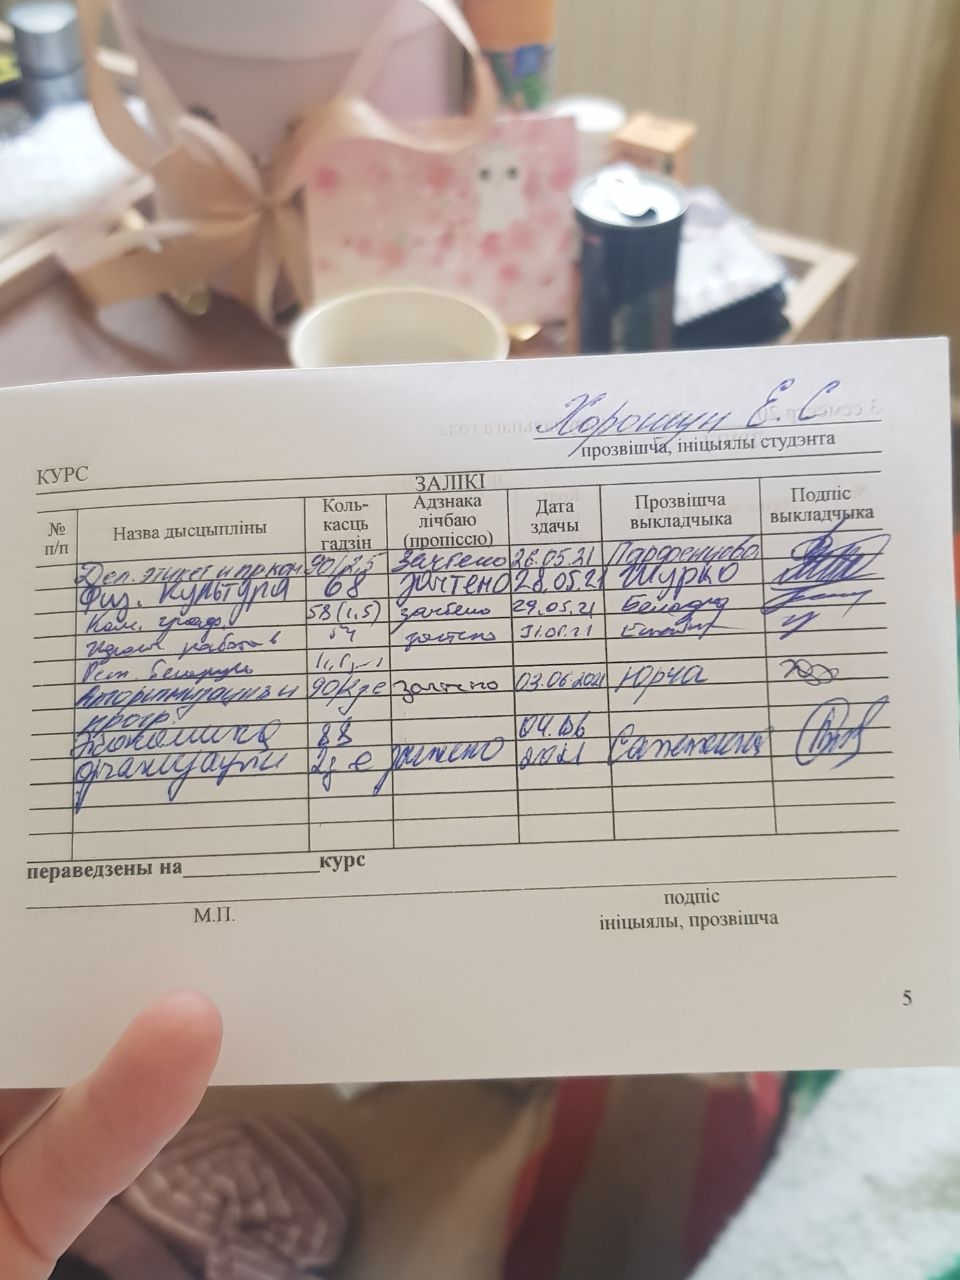 Хорошун Е. С
прозвішча, ініцыялы студэнта
КУРС
ЗАЛІКІ
№ п/п Назва дысцыпліны Коль-касць гадзін Адзнака лічбаю (пропіссю) Дата здачы Прозвішча выкладчыка Подпіс выкладчыка
Дел. этикет и пр. ком. 90/2,5 Зачтено 26.05.21 Парфенцева
Физ. Культура 68 зачтено 28.05.21 Шурко
58 (1,5) зачтено 29.05.21
54 зачтено
Респ. Беларусь
Алгоритмизация и 90/ зачтено 03.06.2021 Юрча
прогр.
Экономика 88 04.06
организации зачтено 2021
пераведзены на____________курс
М.П.
подпіс
ініцыялы, прозвішча
5